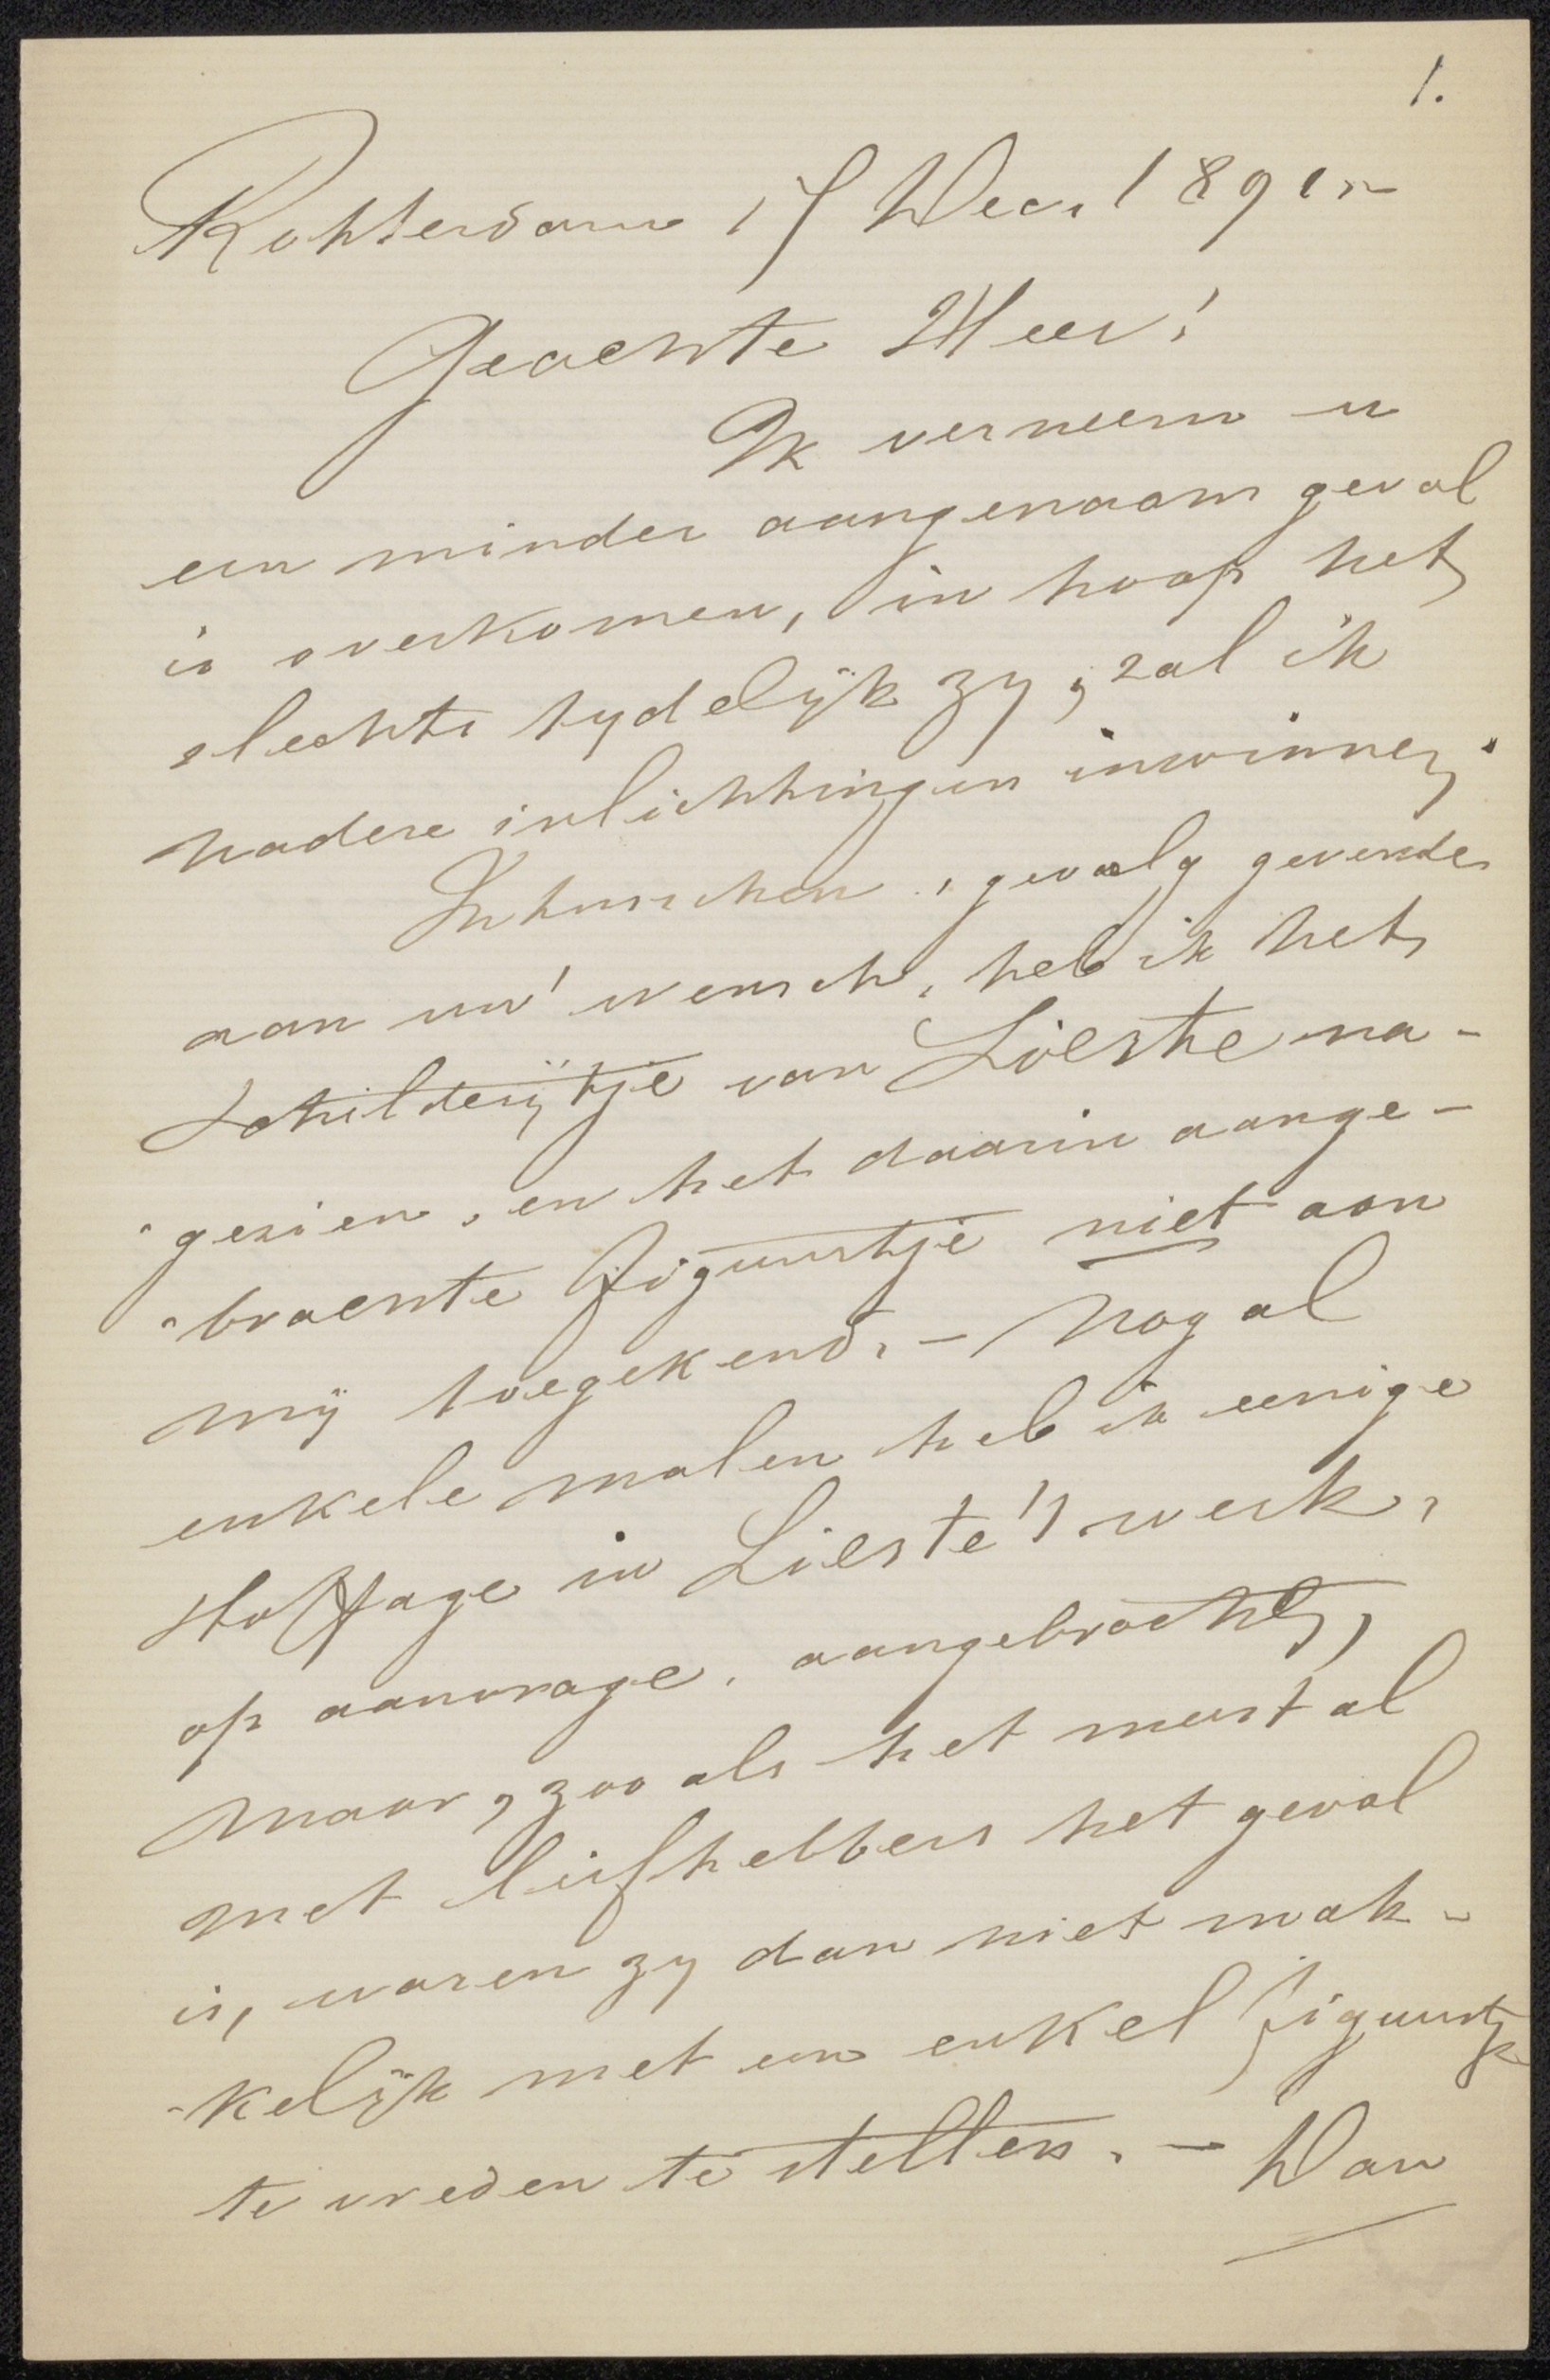 1.
Rotterdam 17 Dec. 1891
Geachte Heer!
Ik verneem u
een minder aangenaam geval
is overkomen, in hoop het
slechts tydelijk zy, zal ik
nadere inlichtingen inwinnen.
Intusschen, gevolg gevende
aan uw' wensch, heb ik het
schilderijtje van Lieste na-
"gezien, en het daarin aange-
"brachte figuurtje niet aan
mij toegekend. - Nog al
enkele malen heb ik eenige
stoffage in Lieste's werk,
op aanvrage, aangebracht,
maar, zoo als het meest al
met liefhebbers het geval
is, waren zy dan niet mak-
-kelijk met een enkel figuurtje
te vreden te stellen. - Dan